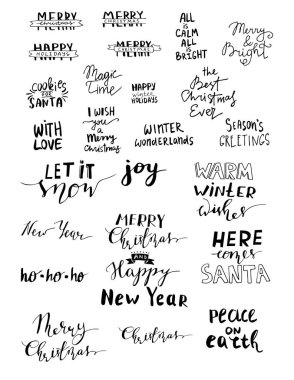 MERRY
Christmas
MERRY
CHRISTMAS
ALL
IS
CALM
ALL IS
BRIGHT
Merry
&
Bright
HAPPY
HOLIDAYS
MERRY
CHRISTMAS
cookies
FOR
SANTA
Magic
Time
HAPPY
winter
HOLIDAYS
the
Best
Christmas
Ever
WITH
LOVE
I WISH
you
a
Merry
Christmas
WINTER
wonderlands
SEASON'S
GREETINGS
LET IT
snow
joy
WARM
WINTER
wishes
New Year
MERRY
Christmas
AND
Happy
New Year
HERE
comes
SANTA
ho·ho·ho
Merry
Christmas
Christmas
PEACE
ON
earth